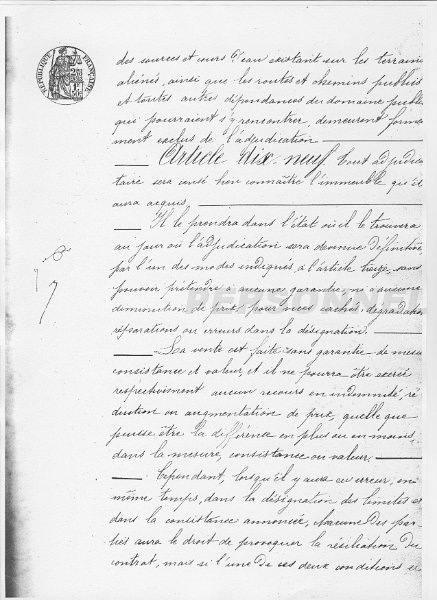 RÉPUBLIQUE FRANÇAISE
des sources et cours d'eau existant sur les terrains
aliénés, ainsi que les routes et chemins publics
et toutes autres dépendances du domaine public
qui pourraient s'y rencontrer demeurent formé
ment exclus de l'adjudication.
Article dix-neuf. Tout adjudica
taire sera censé bien connaître l'immeuble qu'il
aura acquis.
Il le prendra dans l'état où il le trouvera
au jour où l'adjudication sera devenue définitive
par l'un des modes indiqués à l'article treize, sans
pouvoir prétendre à aucune garantie ni à aucune
diminution de prix, pour vices cachés, dégradations
réparations ou erreurs dans la désignation.
La vente est faite sans garantie de mesure
consistance et valeur, et il ne pourra être exercé
respectivement aucun recours en indemnité, ré
duction ou augmentation de prix, quelle que
puisse être la différence en plus ou en moins,
dans la mesure, consistance ou valeur.
Cependant, lorsqu'il y aura eu erreur, en
même temps, dans la désignation des limites et
dans la consistance annoncée, chacune des par
ties aura le droit de provoquer la résiliation du
contrat, mais si l'une de ces deux conditions
PERSONNEL